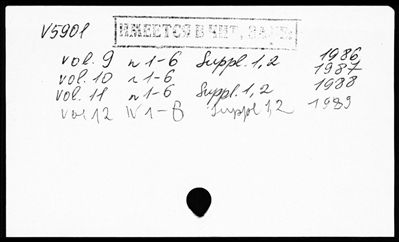 V5901 ИМЕЕТСЯ В ЧИТ. ЗАЛЕ
vol. 9 n 1-6 Suppl. 1, 2 1986
vol. 10 n 1-6 1987
vol. 11 n 1-6 Suppl. 1, 2 1988
vol 12 N 1-6 Suppl 1,2 1989